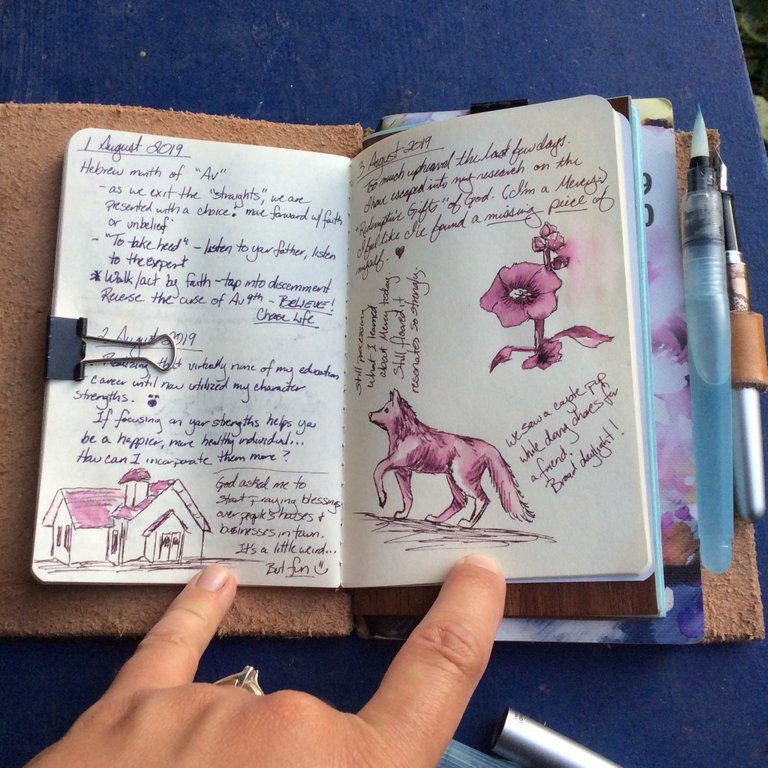 1 August 2019
Hebrew month of "Av"
- as we exit the "straights", we are
presented with a choice: move forward w/ faith
or unbelief
- "To take heed" - listen to your father, listen
to the expert
* Walk/act by faith - tap into discernment
Reverse the curse of Av 9th - BELIEVE!
Choose Life
2 August 2019
- Realizing that virtually none of my education
or career until now utilized my character
strengths.
If focusing on your strengths helps you
be a happier, more healthy individual...
How can I incorporate them more?
God asked me to
start praying blessings
over people's houses &
businesses in town.
It's a little weird...
But fun
3 August 2019
Too much upheaval the last few days.
I have escaped into my research on the
"Redemptive Gifts" of God. (I'm a Mercy.)
I feel like I've found a missing piece of
myself.
Still processing
what I learned
about Mercy today
Still floored it
resonates so strongly
We saw a coyote pup
while doing chores for
a friend.
Broad daylight!!
9
0